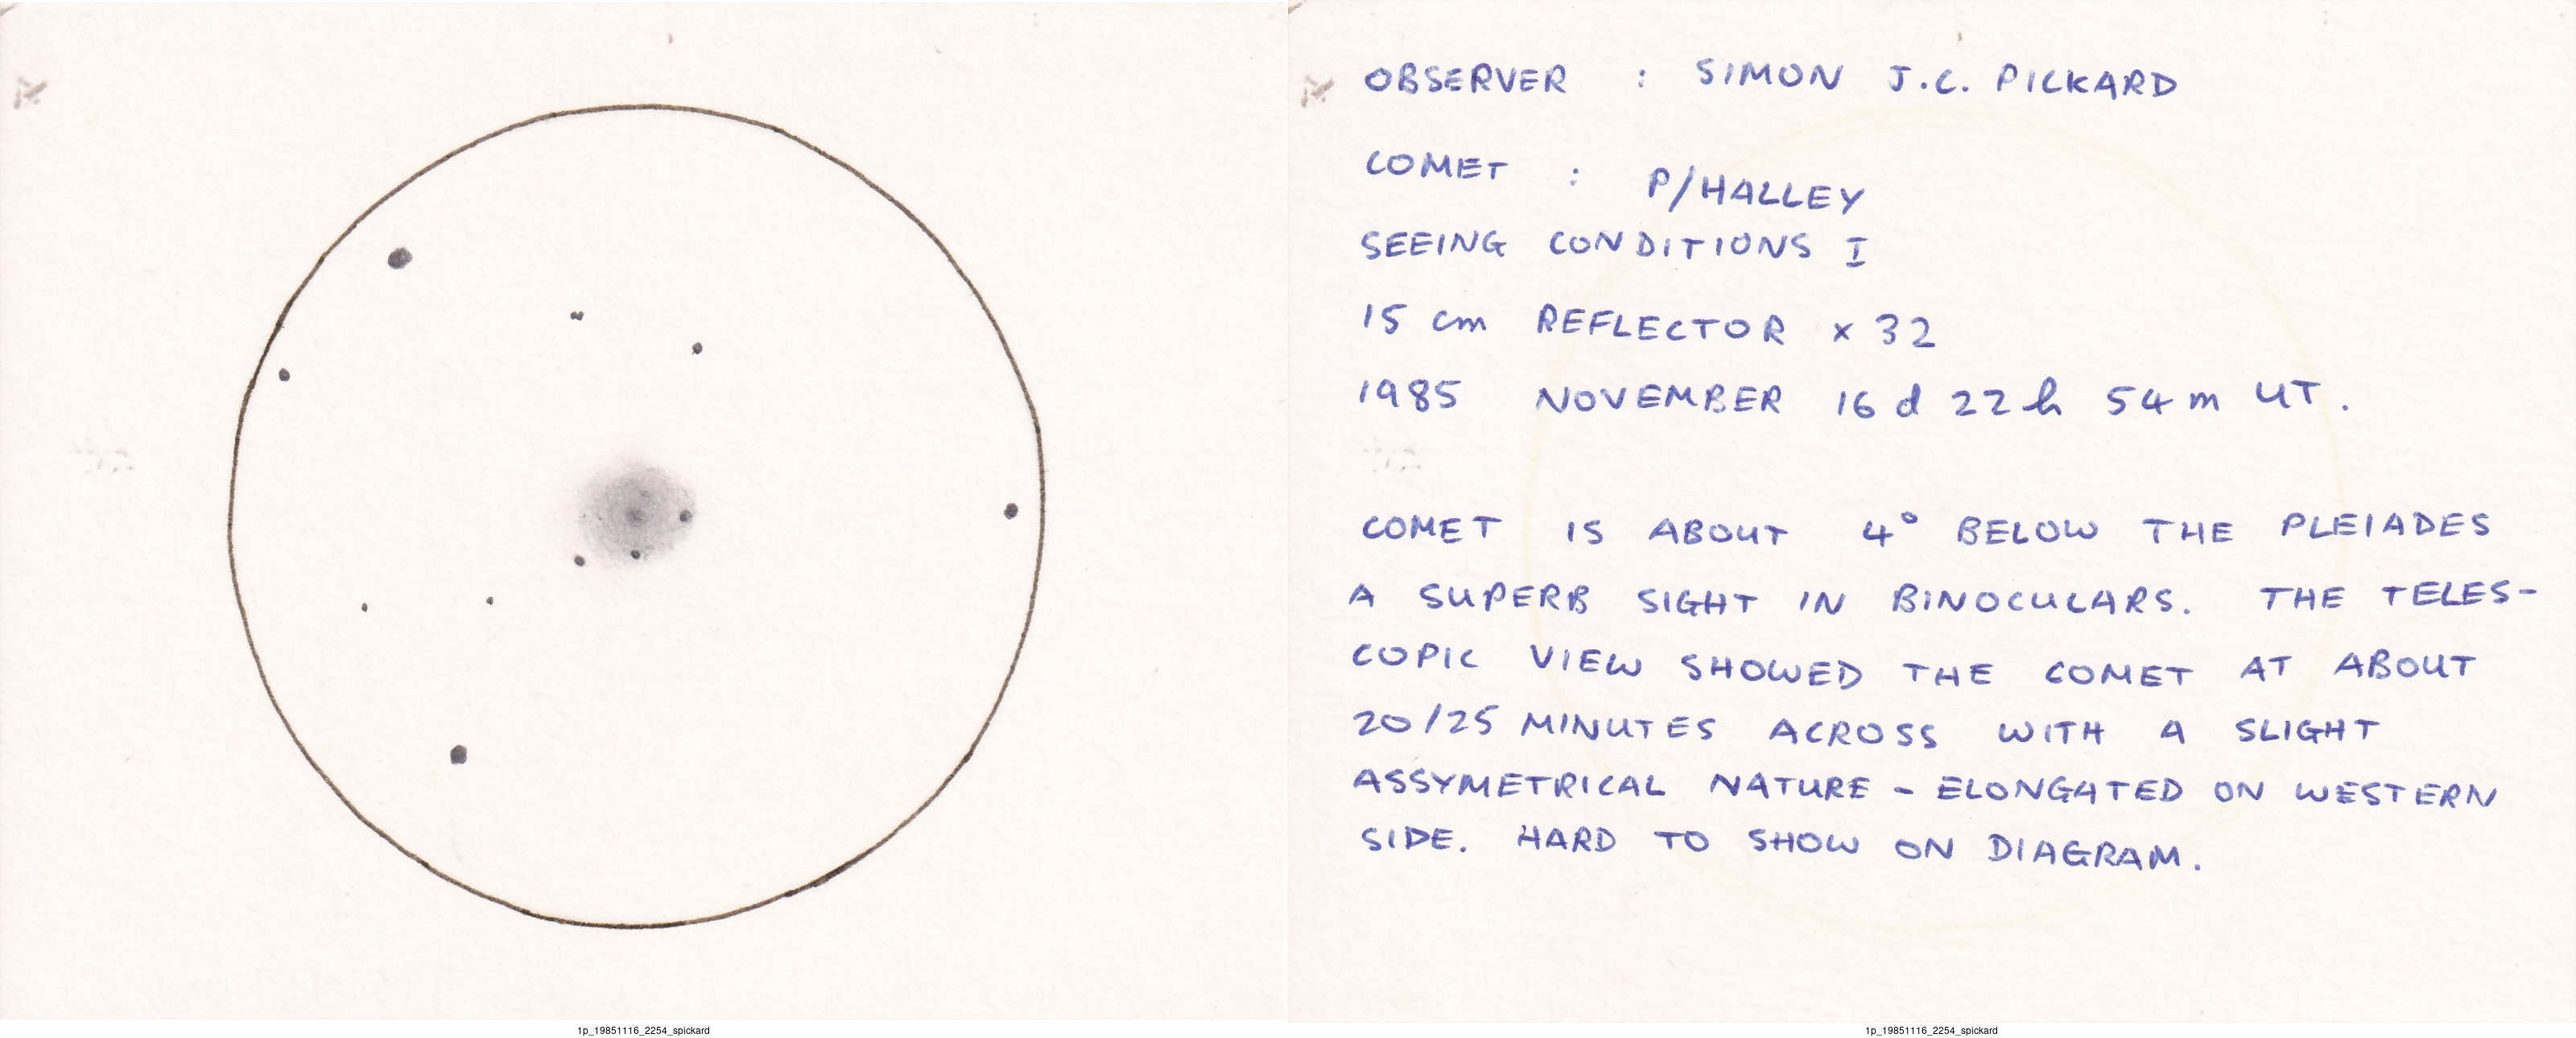 OBSERVER : SIMON J.C. PICKARD
COMET : P/HALLEY
SEEING CONDITIONS I
15 cm REFLECTOR x 32
1985 NOVEMBER 16 d 22 h 54 m UT.
COMET IS ABOUT 4° BELOW THE PLEIADES
A SUPERB SIGHT IN BINOCULARS. THE TELES-
COPIC VIEW SHOWED THE COMET AT ABOUT
20/25 MINUTES ACROSS WITH A SLIGHT
ASSYMETRICAL NATURE - ELONGATED ON WESTERN
SIDE. HARD TO SHOW ON DIAGRAM.
1p_19851116_2254_spickard
1p_19851116_2254_spickard